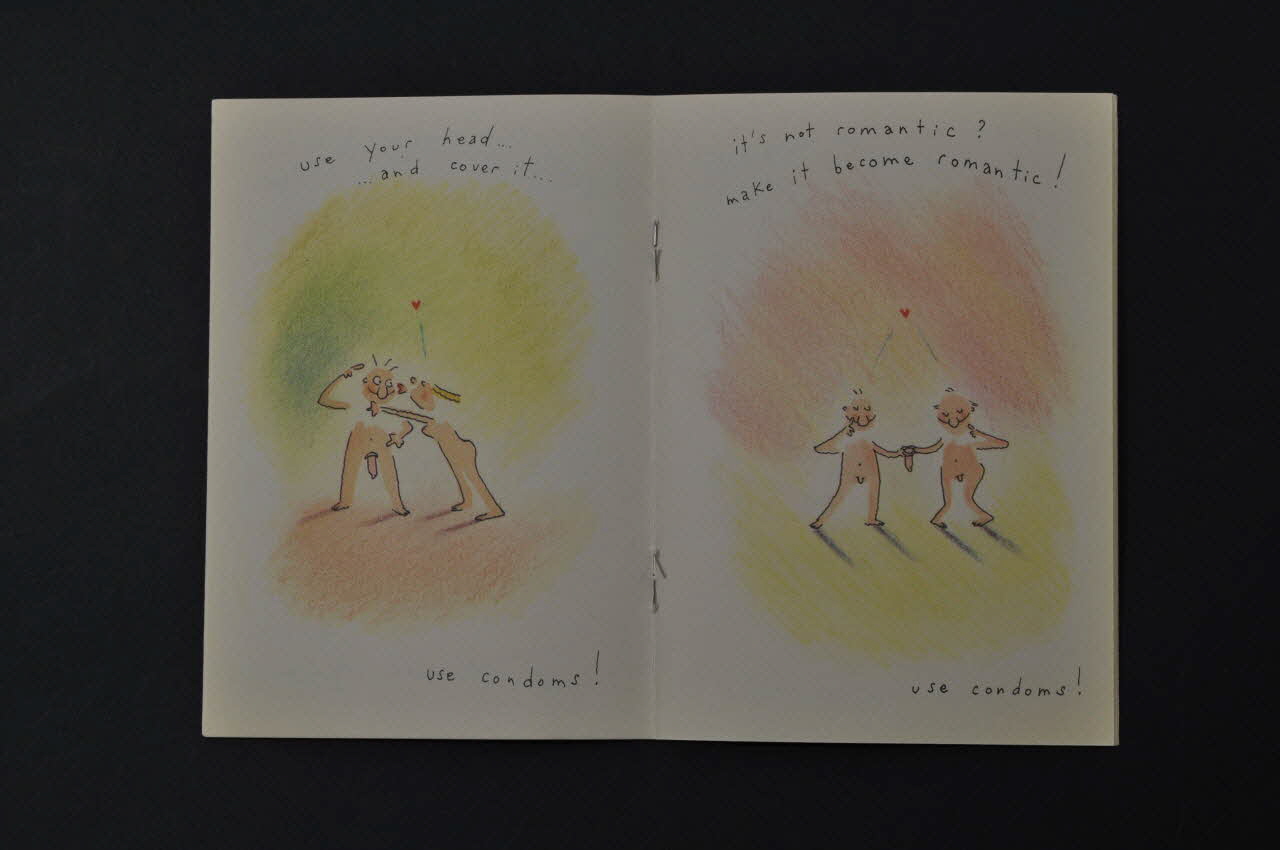 use your head...
...and cover it...
use condoms!
it's not romantic ?
make it become romantic!
use condoms!